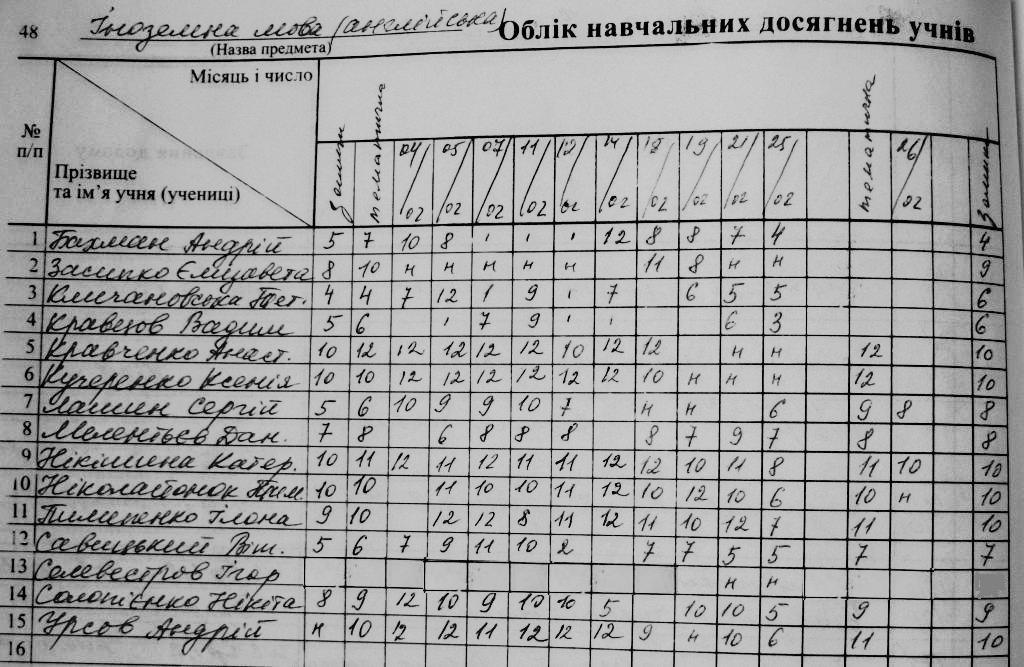 48 Іноземна мова (англійська) Облік навчальних досягнень учнів
(Назва предмета)
Місяць і число
№ п/п
Прізвище
та ім’я учня (учениці)
Зошит тематична 04/02 05/02 07/02 11/02 12/02 14/02 18/02 19/02 21/02 25/02 тематична 26/02 Зошит
1 Бахман Андрій 5 7 10 8 ı ı ı 12 8 8 7 4 4
2 Засипко Єлизавета 8 10 н н н н н 11 8 н н 9
3 Кличановська Тет. 4 4 7 12 1 9 ı 7 6 5 5 6
4 Кравцов Вадим 5 6 ı 7 9 ı ı 6 3 6
5 Кравченко Анаст. 10 12 12 12 12 12 10 12 12 н н 12 10
6 Кучеренко Ксенія 10 10 12 12 12 12 12 12 10 н н н 12 10
7 Лашин Сергій 5 6 10 9 9 10 7 н н 6 9 8 8
8 Мелентьєв Дан. 7 8 6 8 8 8 8 7 9 7 8 8
9 Нікішина Катер. 10 11 12 11 12 11 11 12 12 10 11 8 11 10 10
10 10 10 11 10 10 11 12 10 12 10 6 10 н 10
11 Пилипенко Ілона 9 10 12 12 8 11 12 11 10 12 7 11 10
12 Савицький Віт. 5 6 7 9 11 10 2 7 7 5 5 7 7
13 Селевестров Ігор н н
14 Солопієнко Нікіта 8 9 12 10 9 10 10 5 10 10 5 9 9
15 Урсов Андрій н 10 12 12 11 12 12 12 9 н 10 6 11 10
16